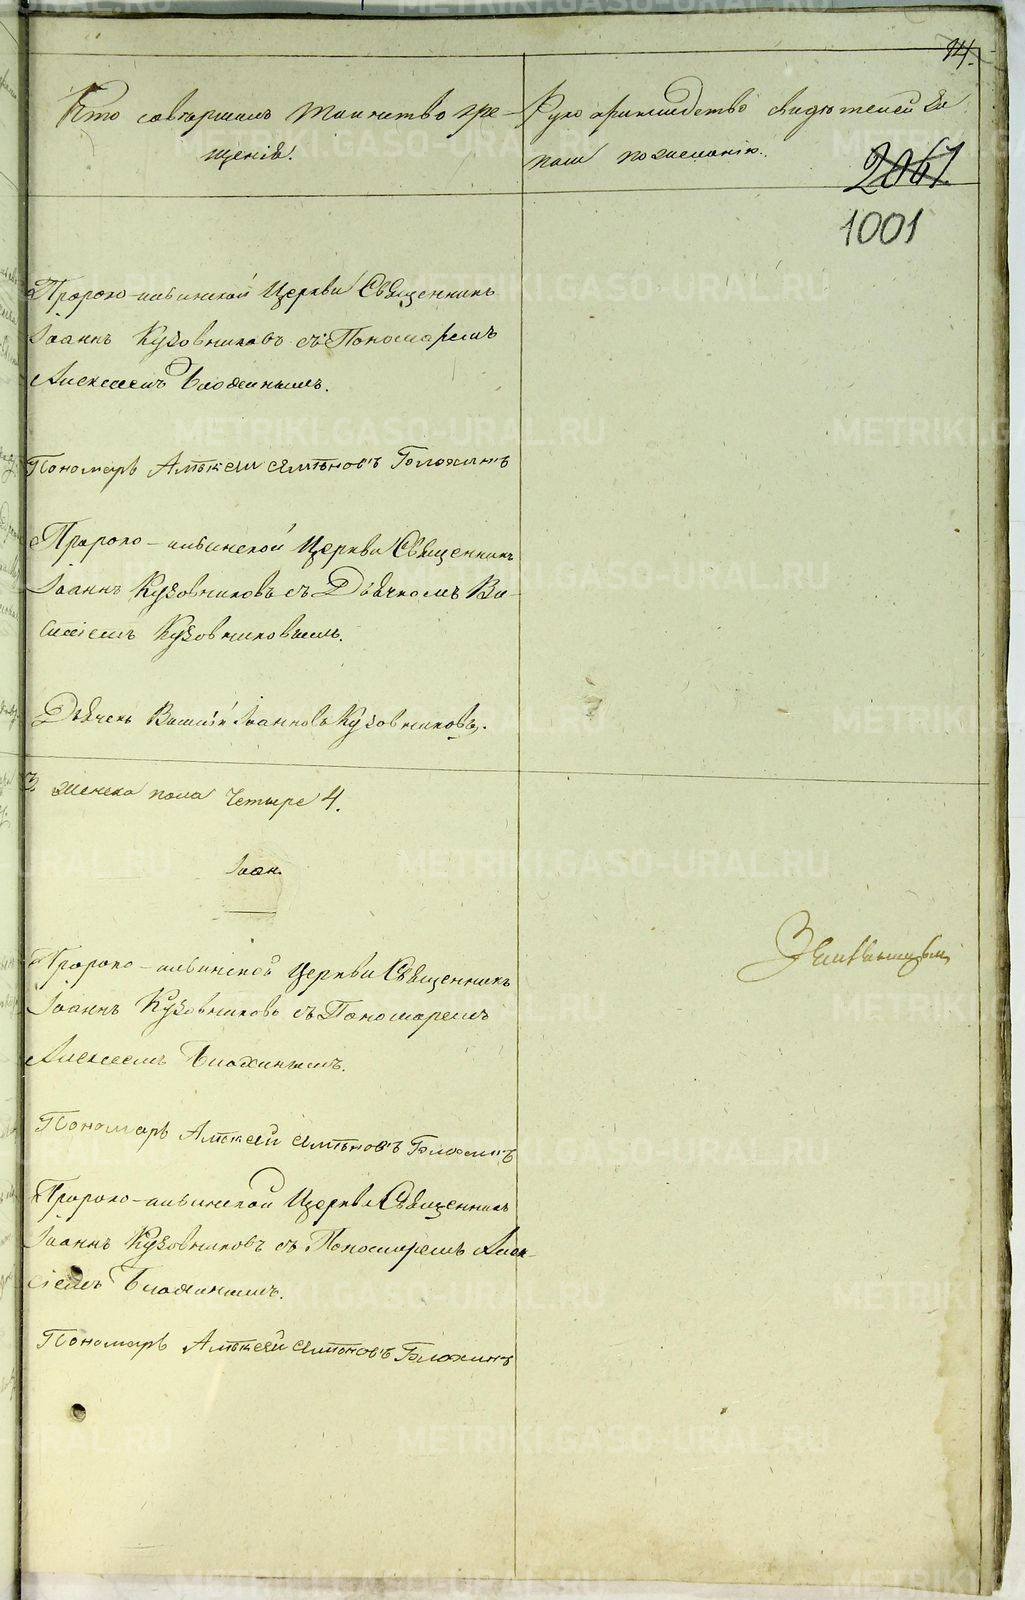 14.
Кто совершалъ таинство кре-
щенія.
Рукоприкладство свидѣтелей за
писи по желанію.
2061
1001
Пророко-ильинской Церкви Священникъ
Іоаннъ Кузовниковъ съ Пономаремъ
Алексеемъ Блохинымъ.
Пономарь Алѣксей Блохинъ
Пророко-ильинской Церкви Священникъ
Іоаннъ Кузовниковъ съ Дьячкомъ Ва-
силіемъ Кузовниковымъ.
Дьячекъ Василій Іоанновъ Кузовниковъ.
женска пола четыре 4.
Іоан.
Пророко-ильинской Церкви Священникъ
Іоаннъ Кузовниковъ съ Пономаремъ
Алексеемъ Блохинымъ.
Пономарь Алѣксей Блохинъ
Пророко-ильинской Церкви Священникъ
Іоаннъ Кузовниковъ съ Пономаремъ Алек-
сіемъ Блохинымъ.
Пономарь Алѣксей Блохинъ
METRIKI.GASO-URAL.RU